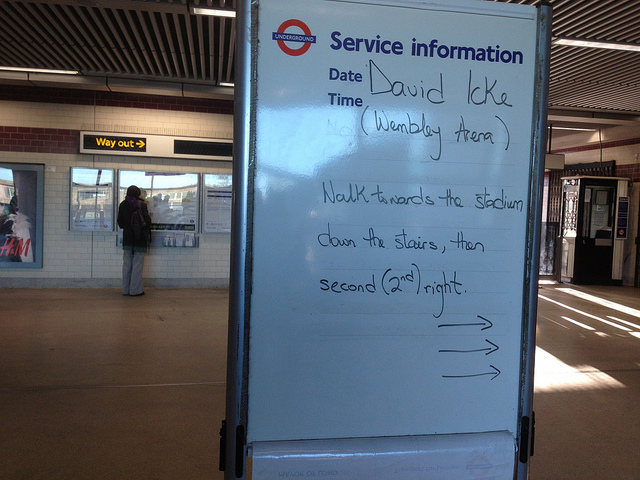 UNDERGROUND
Service information
Date David Icke
Time (Wembley Arena)
Walk towards the stadium
down the stairs, then
second (2nd) right.
Way out →
H&M